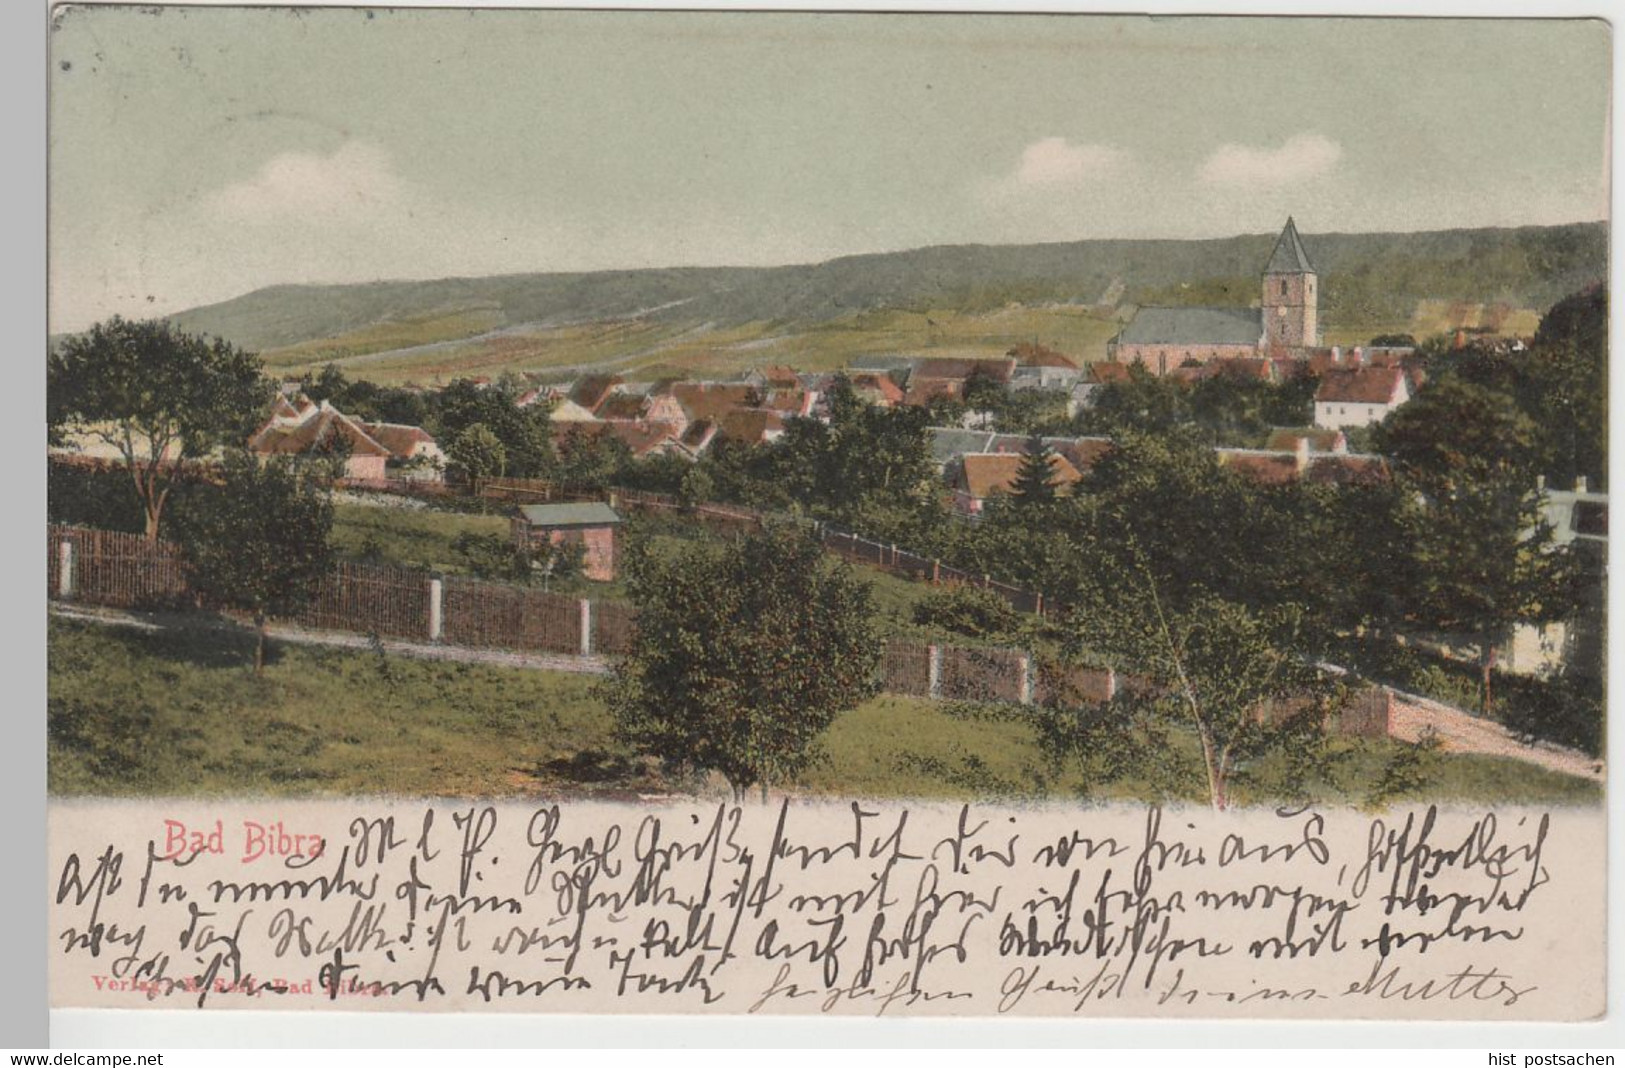 Bad Bibra
M. l. P. Herzl Grüße sendet Dir von hier aus, hoffentlich
bist Du munter Deine Mutter ist mit hier, ich fahre morgen wieder
weg, das ist rauh u kalt. Auf frohes Wiedersehen mit vielen
Grüßen Deine Tante herzlichen Gruß deine Mutter
Verlag Bad Bibra.
www.delcampe.net
hist postsachen